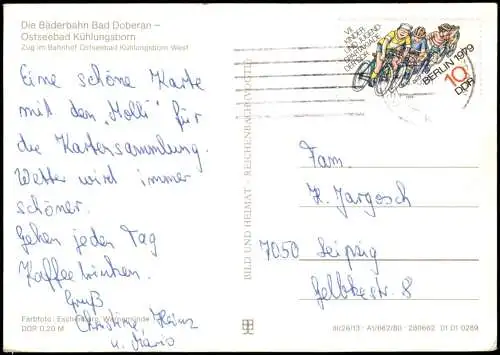 Die Bäderbahn Bad Doberan –
Ostseebad Kühlungsborn
Zug im Bahnhof Ostseebad Kühlungsborn West
Eine schöne Karte
mit den „Molli" für
die Kartensammlung.
Wetter wird immer
schöner.
Gehen jeden Tag
Kaffeetrinken.
Gruß
Christine, Heinz
u. Mario
Farbfoto: Eschenburg, Warnemünde
DDR 0,20 M
BILD UND HEIMAT · REICHENBACH (VOGTL)
VII. KINDER-
UND JUGEND-
SPARTAKIADE
DER DDR
BERLIN 1979
10
DDR
Fam.
K. Jargosch
7050 Leipzig
Gelbkestr. 8
III/26/13 · A1/662/80 · 280662 01 01 0289